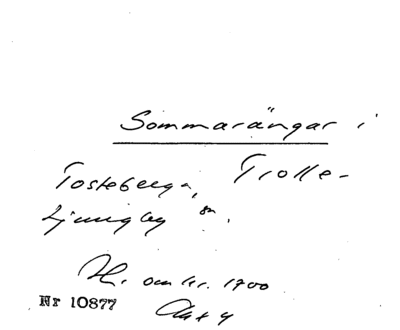 Sommarängar i
Tosteberga, Trolle-
Ljungby sn.
om kr. 1700
Nr 10877